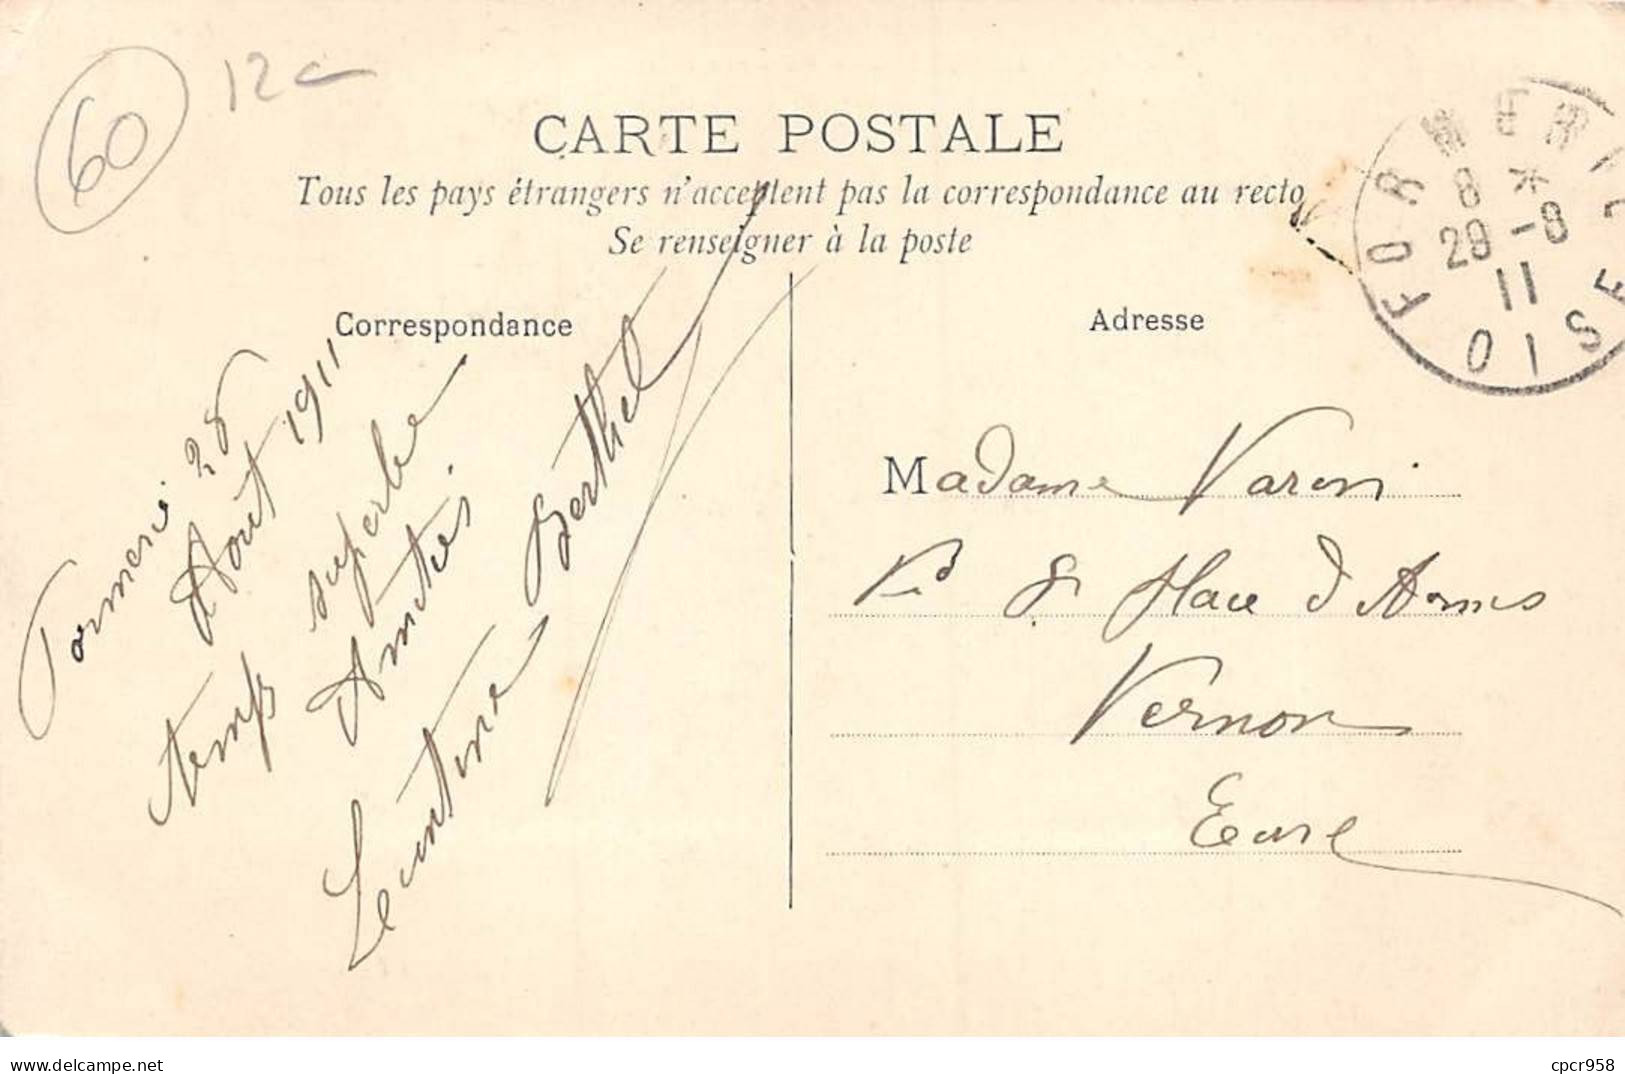 60
12
CARTE POSTALE
Tous les pays étrangers n'acceptent pas la correspondance au recto
Se renseigner à la poste
FORMERIE
8 *
28 -8
11
OISE
Correspondance
Adresse
Formerie 28
Aout 1911
temps superbe
Amitiés
Léontine Berthel
Madame Varin
8 Place d'Armes
Vernon
Eure
Delcampe.net
cpcr958